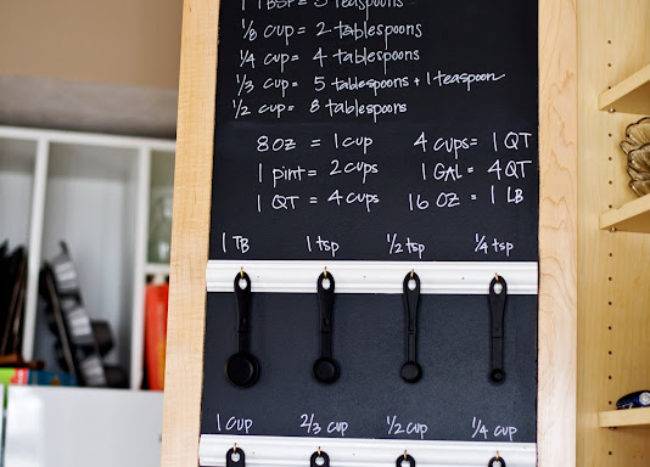 1 TBSP = 3 teaspoons
1/8 cup = 2 tablespoons
1/4 cup = 4 tablespoons
1/3 cup = 5 tablespoons + 1 teaspoon
1/2 cup = 8 tablespoons
8 OZ = 1 cup
1 pint = 2 cups
1 QT = 4 cups
4 cups = 1 QT
1 GAL = 4 QT
16 OZ = 1 LB
1 TB 1 tsp 1/2 tsp 1/4 tsp
1 cup 2/3 cup 1/2 cup 1/4 cup